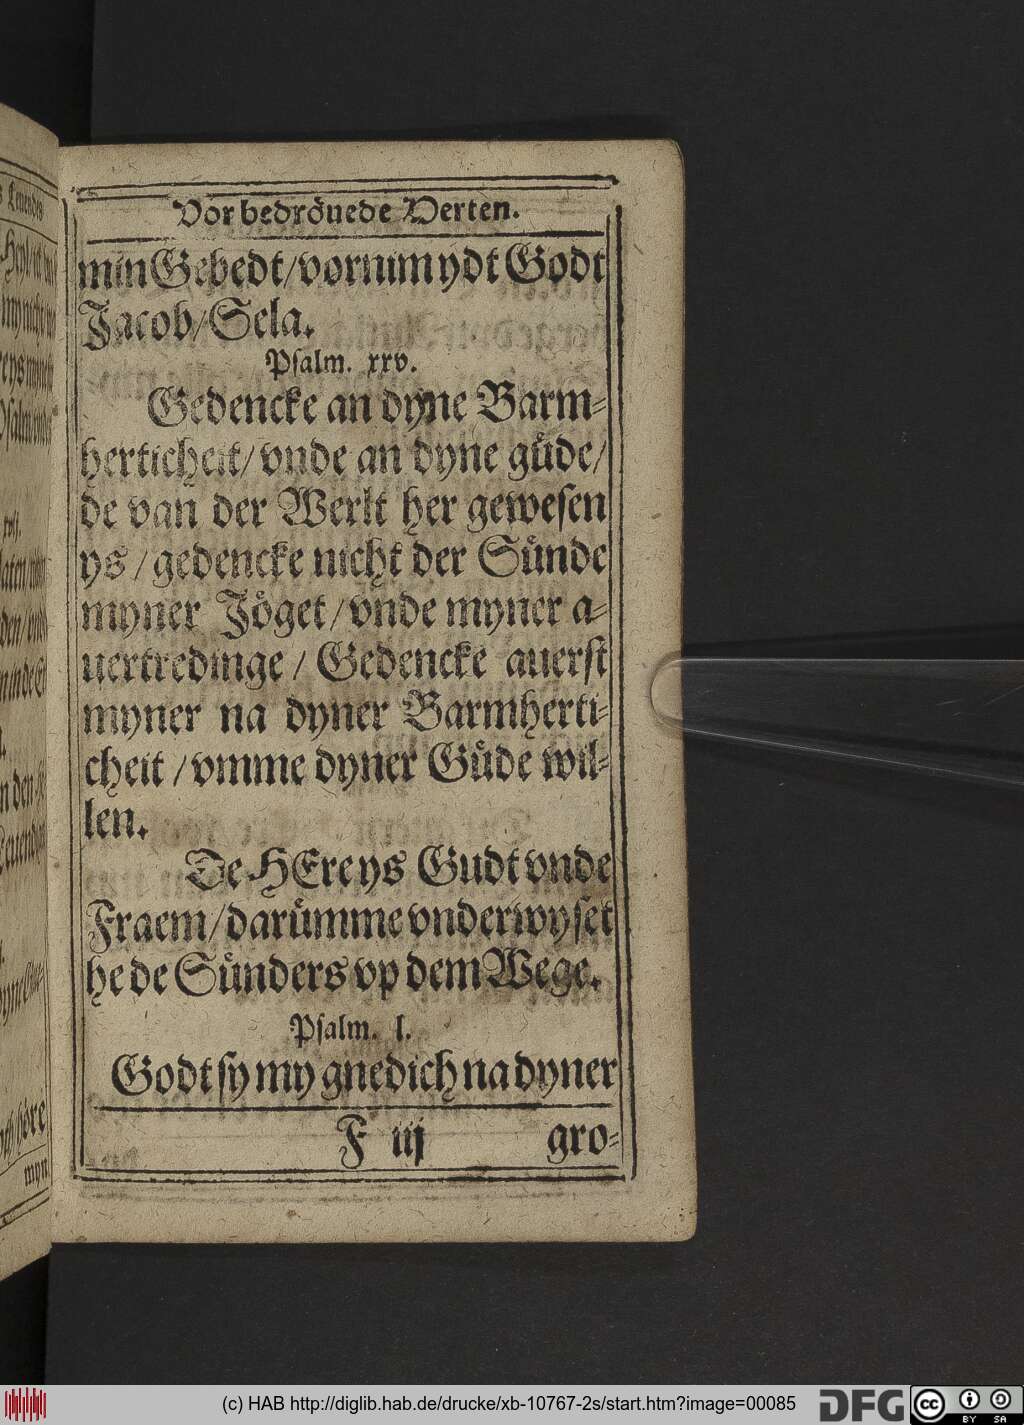 Vor bedröuede Herten.
min Gebedt/ vornim ydt Godt
Jacob/ Sela.
Psalm. xxv.
Gedencke an dyne Barm-
herticheit/ vnde an dyne güde/
de van der Werlt her gewesen
ys / gedencke nicht der Sünde
myner Jöget / vnde myner a-
uertredinge / Gedencke auerst
myner na dyner Barmherti-
cheit / vmme dyner Güde wil-
len.
De HEre ys Gudt vnde
Fraem/ darümme vnderwyset
he de Sünders vp dem Wege.
Psalm. l.
Godt sy my gnedich na dyner
F iij gro-
myn
(c) HAB http://diglib.hab.de/drucke/xb-10767-2s/start.htm?image=00085
DFG
cc BY SA